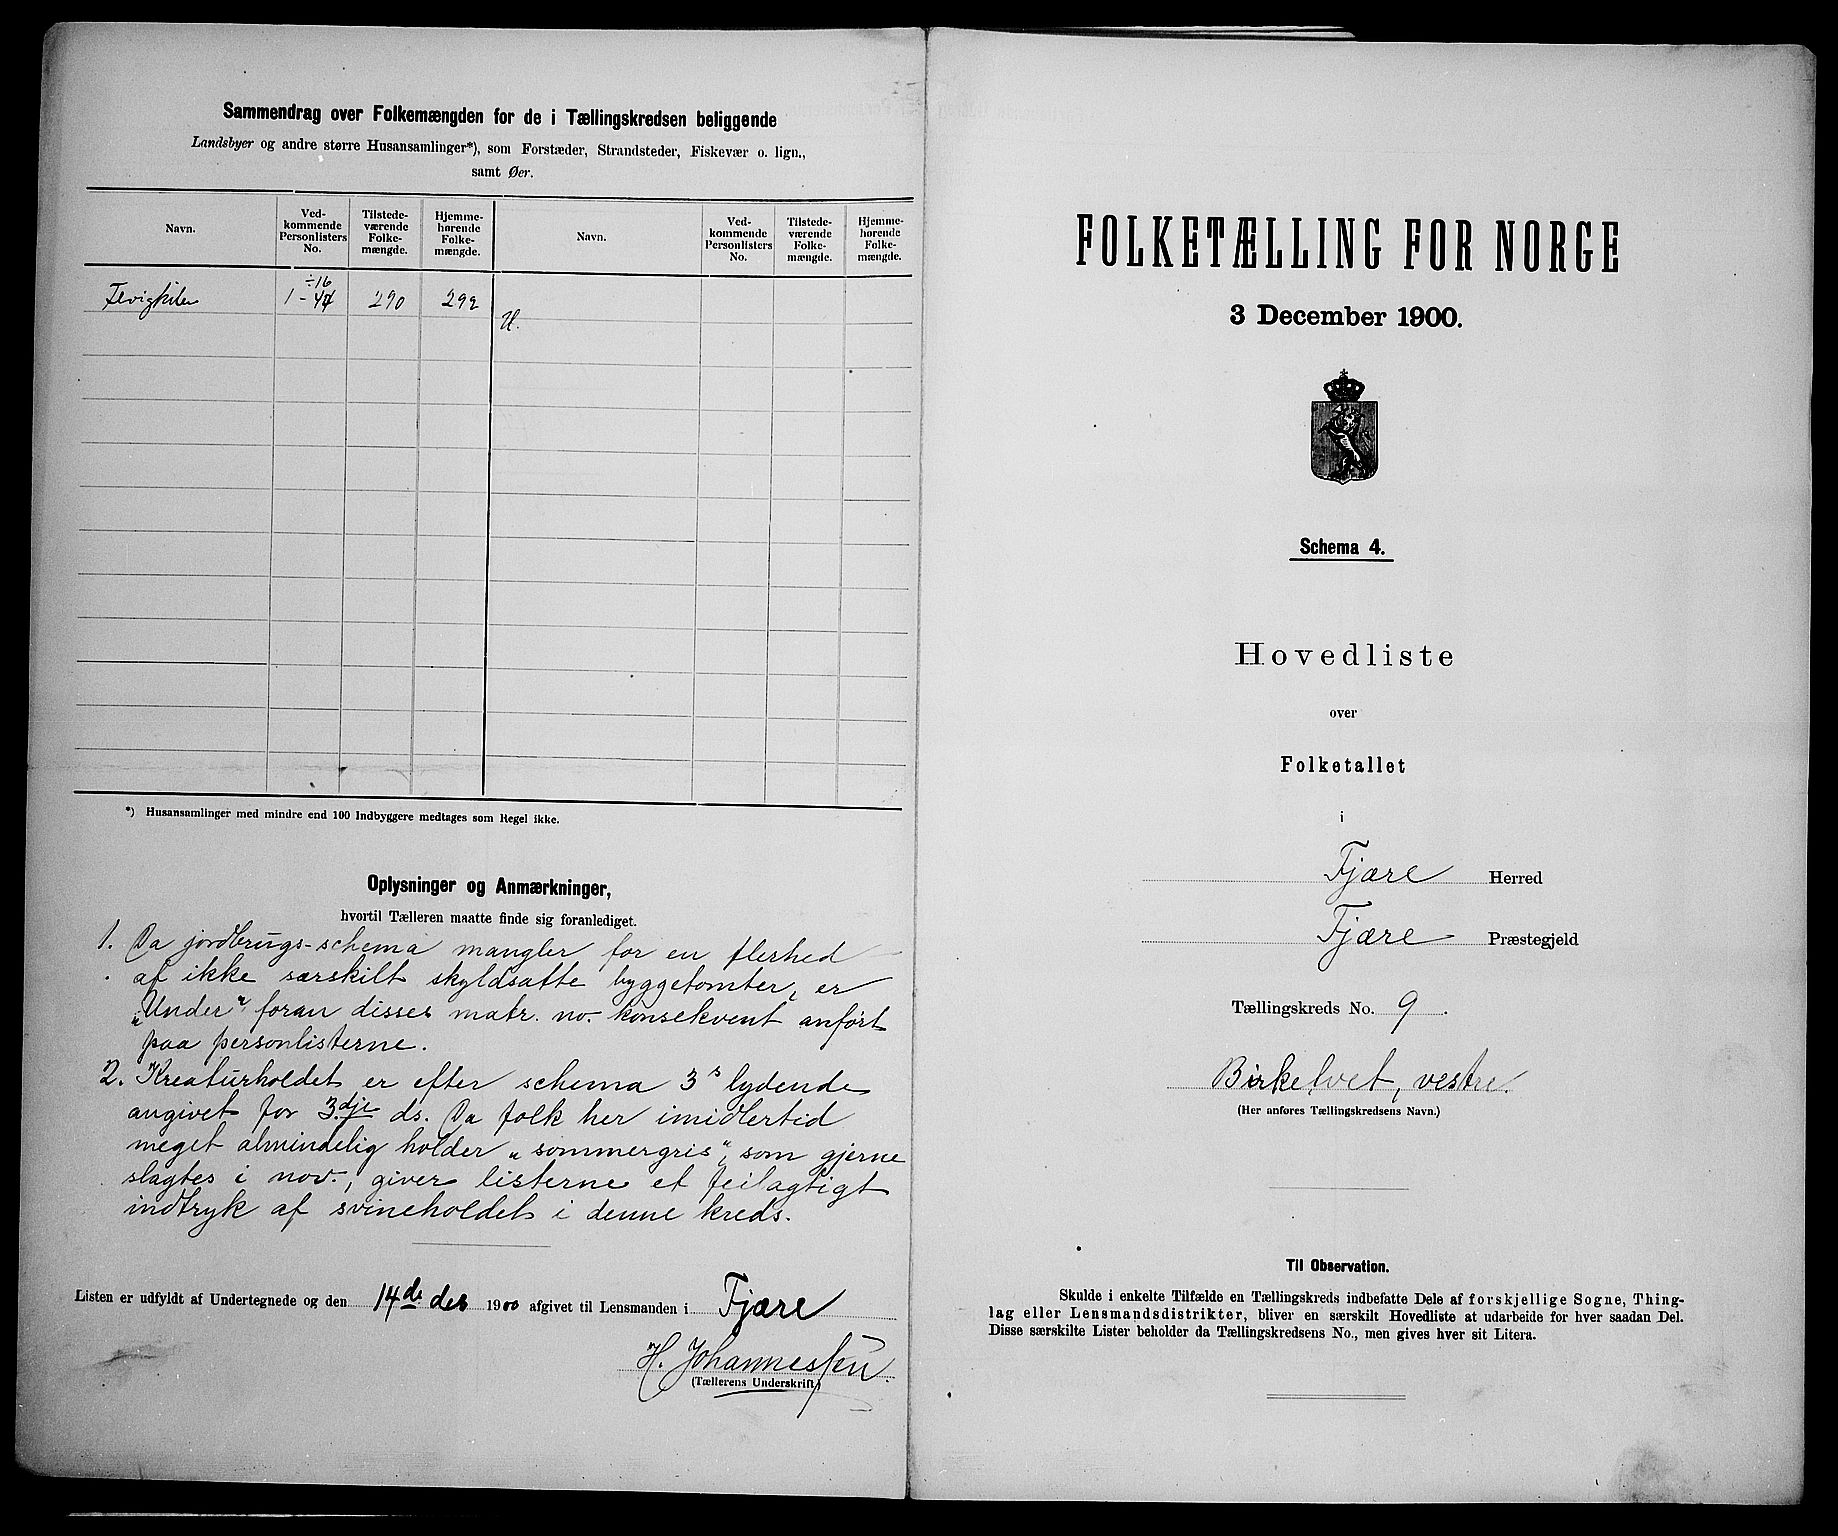 Sammendrag over Folkemængden for de i Tællingskredsen beliggende
Landsbyer og andre større Husansamlinger*), som Forstæder, Strandsteder, Fiskevær o. lign.,
samt Øer.
Navn. Ved-kommende Personlisters No. Tilstede-værende Folke-mængde. Hjemme-hørende Folke-mængde. Navn. Ved-kommende Personlisters No. Tilstede-værende Folke-mængde. Hjemme-hørende Folke-mængde.
÷16
1-44 290 292
H.
*) Husansamlinger med mindre end 100 Indbyggere medtages som Regel ikke.
Oplysninger og Anmærkninger,
hvortil Tælleren maatte finde sig foranlediget.
1. Da jordbrugs-schema mangler for en flerhed
af ikke særskilt skyldsatte byggetomter, er
"Under" foran disses matr. no. konsekvent anført
paa personlisterne.
2. Kreaturholdet er efter schema 3s lydende
angivet for 3.dje ds. Da folk her imidlertid
meget almindelig holder "sommergris", som gjerne
slagtes i nov., giver listerne et feilagtigt
indtryk af svineholdet i denne kreds.
Listen er udfyldt af Undertegnede og den 14de des 1900 afgivet til Lensmanden i Fjære
H. Johannessen.
(Tællerens Underskrift.)
FOLKETÆLLING FOR NORGE
3 December 1900.
Schema 4.
Hovedliste
over
Folketallet
i
Fjære Herred
Fjære Præstegjeld
Tællingskreds No. 9.
Birkelvet, vestre.
(Her anføres Tællingskredsens Navn.)
Til Observation.
Skulde i enkelte Tilfælde en Tællingskreds indbefatte Dele af forskjellige Sogne, Thing-
lag eller Lensmandsdistrikter, bliver en særskilt Hovedliste at udarbeide for hver saadan Del.
Disse særskilte Lister beholder da Tællingskredsens No., men gives hver sit Litera.